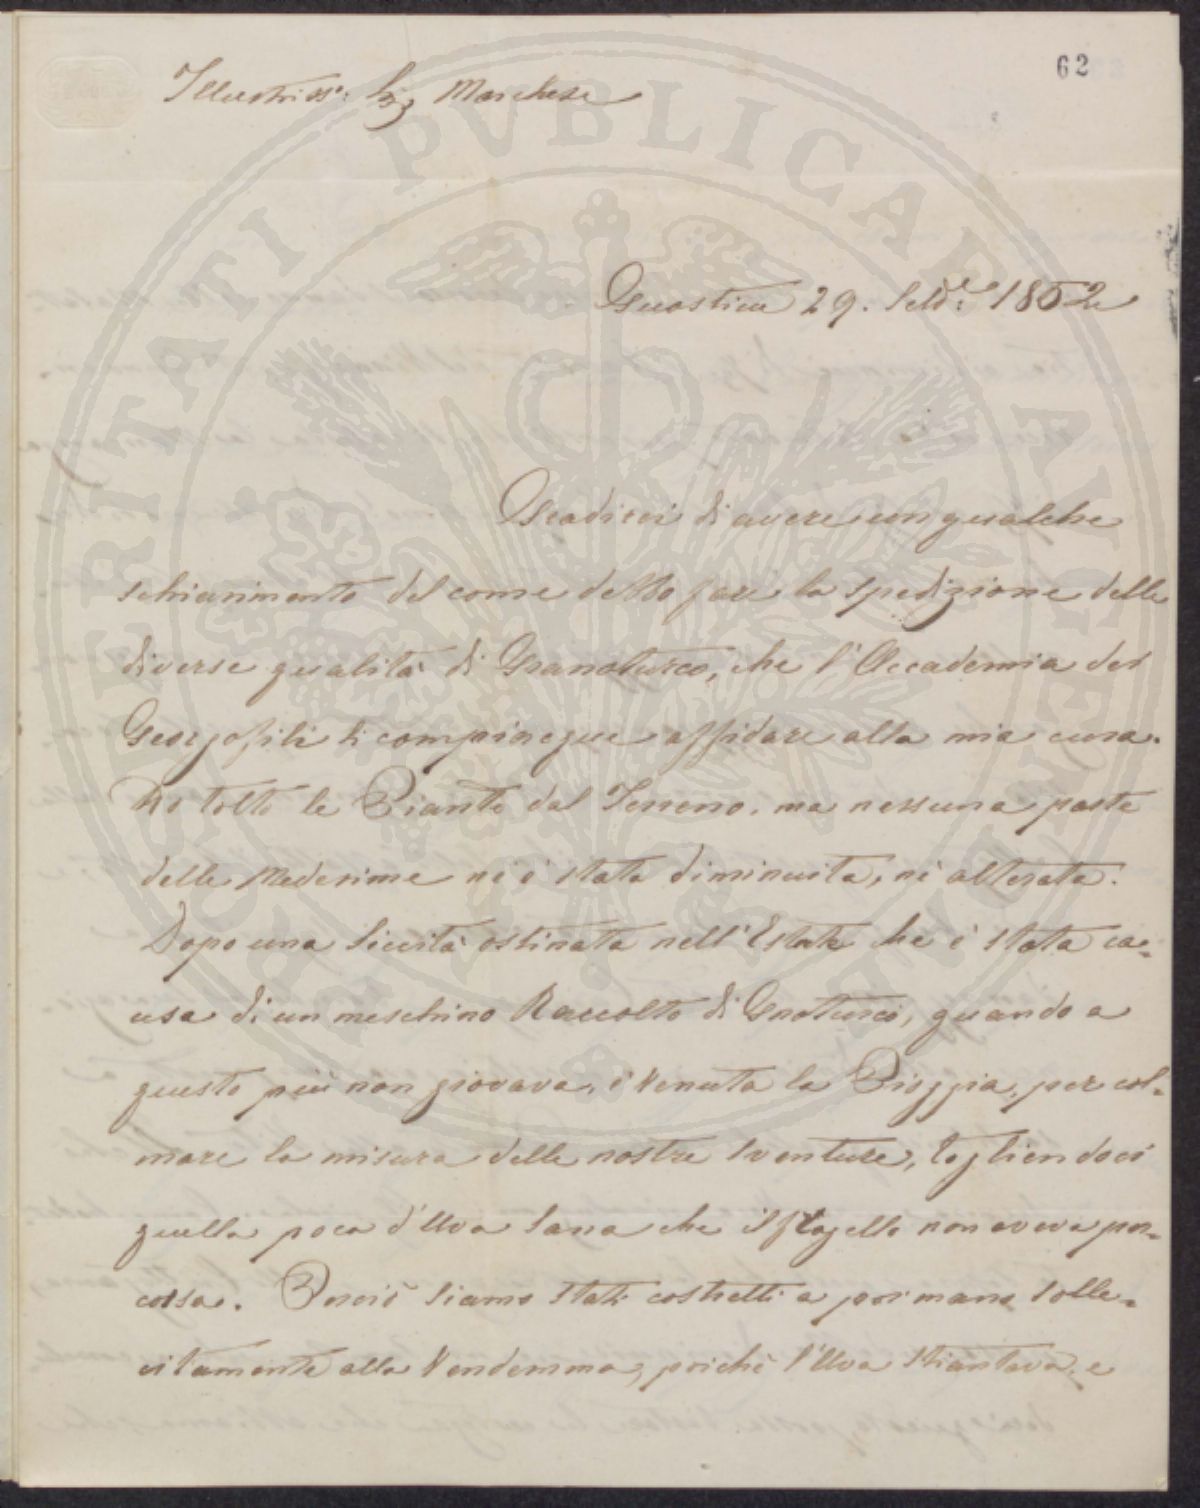 62
Illustriss: Sig Marchese
Guastica 29. Settbre 1852
Gradirei di avere un qualche
schiarimento del come debbo fare la spedizione delle
diverse qualità di Granoturco, che l'Accademia dei
Georgofili si compiacque affidare alla mia cura.
Ho tolto le Piante dal Terreno, ma nessuna parte
delle Medesime nè è stata diminuita, nè alterata.
Dopo una Siccità ostinata nell'Estate che è stata ca=
usa di un meschino Raccolto di Gnoturco, quando a
questo più non giovava, è venuta la Pioggia, per col=
mare la misura delle nostre sventure, togliendoci
quella poca d'Uva sana che il flagello non aveva per=
corsa. Perciò siamo stati costretti a por mano solle=
citamente alla Vendemma, poichè l'Uva stiantava, e
PUBLICAE